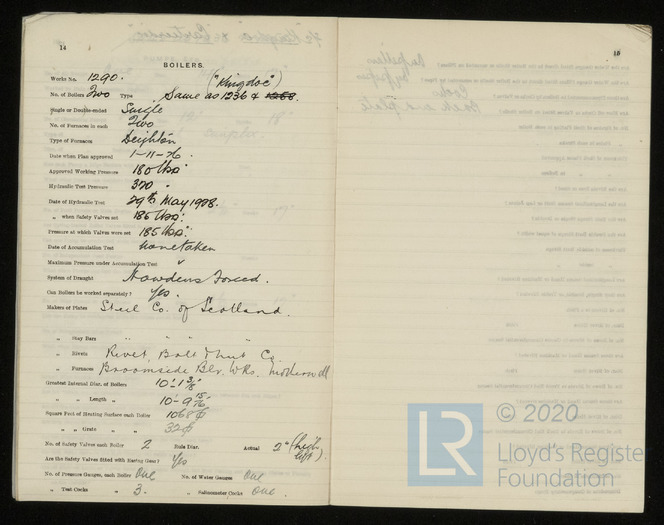 14
BOILERS.
Works No. 1290. ("Kingdoc")
No. of Boilers Two Type Same as 1236 & 1288.
Single or Double-ended Single
No. of Furnaces in each Two
Type of Furnaces Deighton
Date when Plan approved 1-11-26
Approved Working Pressure 180 lbs
Hydraulic Test Pressure 320 "
Date of Hydraulic Test 29th May 1928.
" when Safety Valves set
Pressure at which Valves were set 185 lbs
Date of Accumulation Test none taken
Maximum Pressure under Accumulation Test "
System of Draught Howdens Forced.
Can Boilers be worked separately? Yes.
Makers of Plates Steel Co. of Scotland.
" Stay Bars " " " "
" Rivets Rivet, Bolt & Nut Co.
" Furnaces Broomside Blr. Wks. Motherwell
Greatest Internal Diam. of Boilers 10'-1 3/8"
" " Length " 10'-9 15/16"
Square Feet of Heating Surface each Boiler 1068
" " Grate "
No. of Safety Valves each Boiler 2 Rule Diam. Actual 2" (high lift).
Are the Safety Valves fitted with Easing Gear? Yes
No. of Pressure Gauges, each Boiler One No. of Water Gauges One
" Test Cocks " 3. " Salinometer Cocks One.
15
LR
© 2020
Lloyd's Register
Foundation